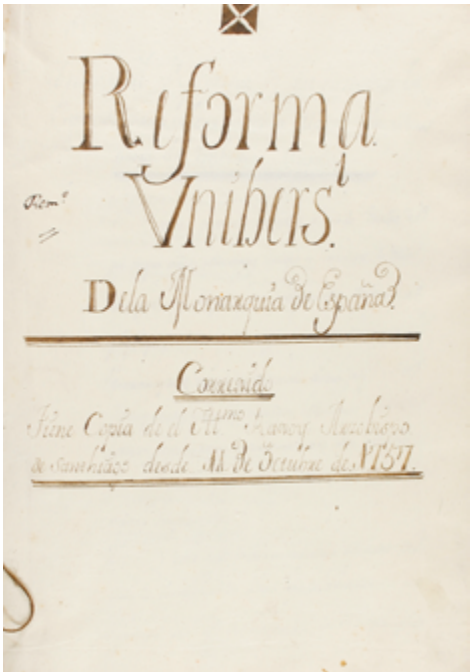 Reforma
Vnibers.l
De la Monarquia de España.
Corregido
Tiene Copia de el Ill.mo Arzobispo
de Santiago desde 11 De de 1757.